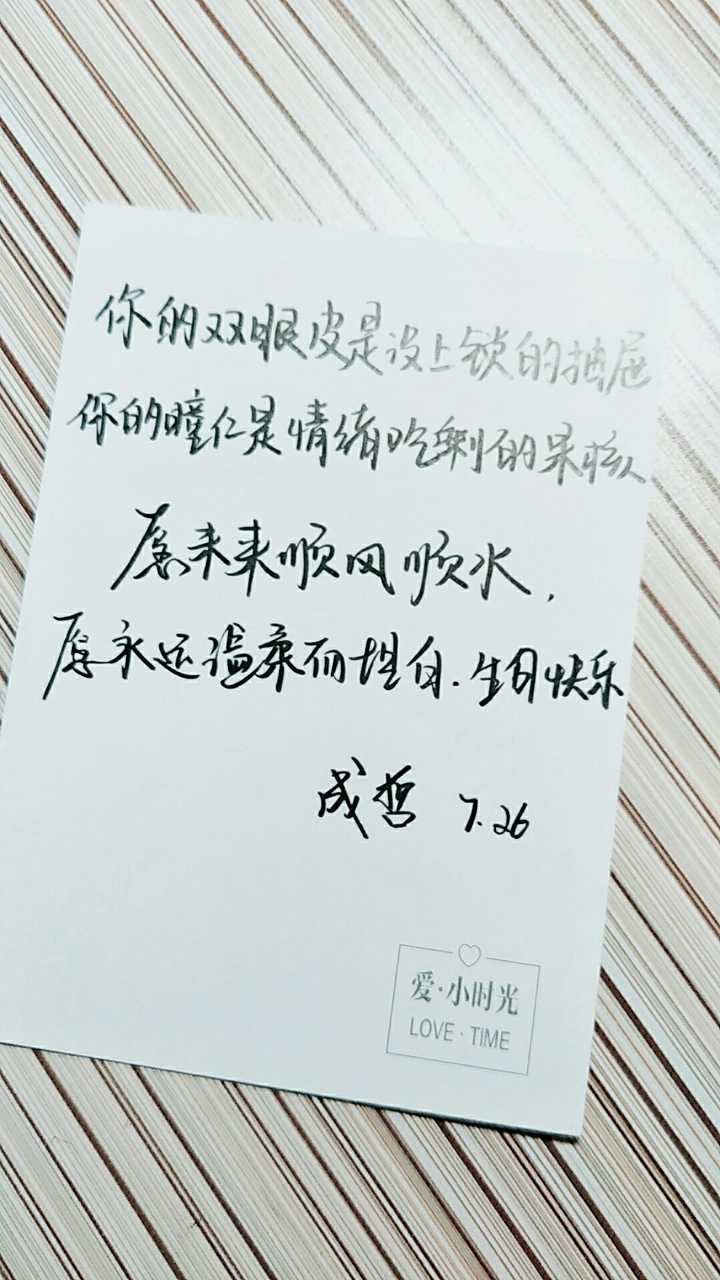 你的双眼皮是没上锁的抽屉
你的瞳仁是情绪吃剩的果核
愿未来顺风顺水，
愿永远温柔而坦白.生日快乐
成哲 7.26
爱·小时光
LOVE·TIME